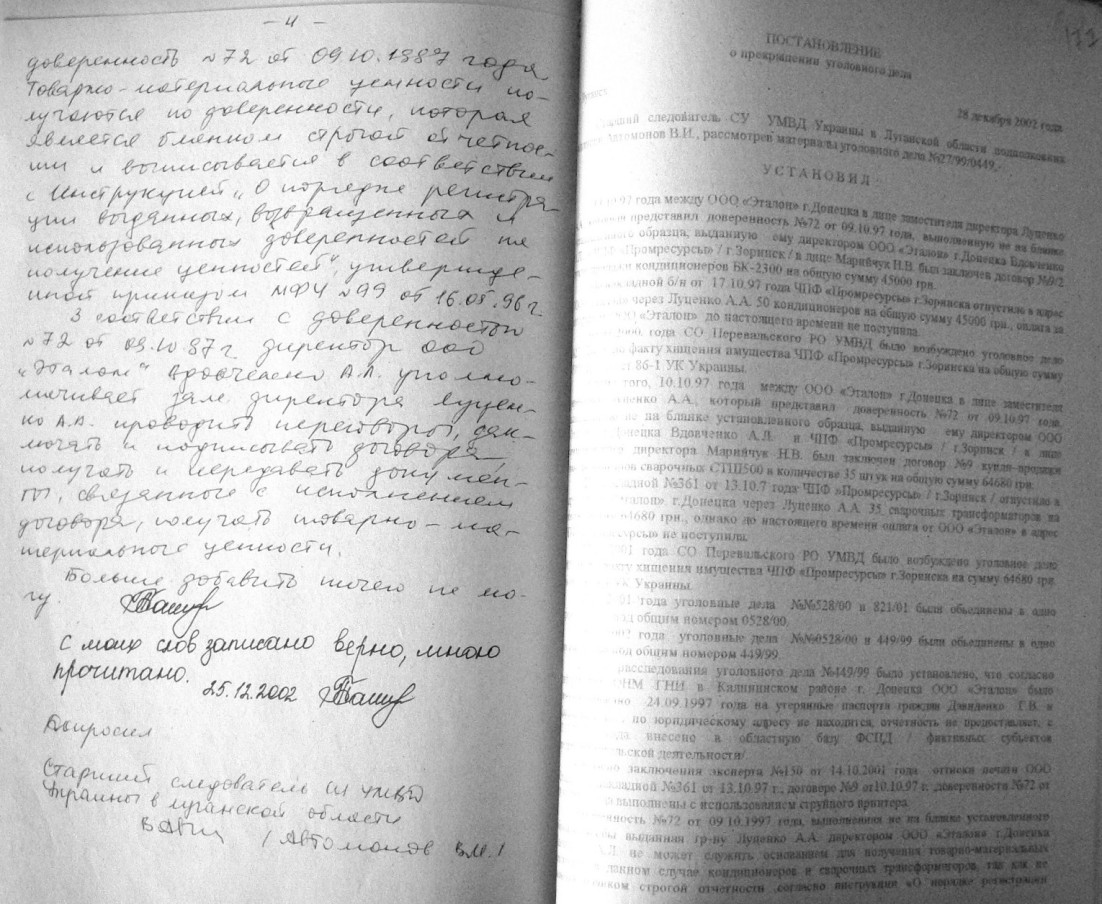 - 4 -
доверенность №72 от 09.10.1997 года
Товарно-материальные ценности по-
лучаются по доверенности, которая
является бланком строгой отчетнос-
ти и выписывается в соответствии
с Инструкцией „О порядке регистра-
ции выданных, возвращенных и
использованных доверенностей на
получение ценностей", утвержде-
нной приказом МФУ №99 от 16.05.96г.
В соответствии с доверенностью
№72 от 09.10.97г. директор ООО
„Эталон" Вдовченко А.Л. уполно-
мачивает зам. директора Луцен-
ко А.А. проводить переговоры, зак-
лючать и подписывать договора
получать и передавать докумен-
ты, связанные с исполнением
договора, получать товарно-ма-
териальные ценности.
Больше добавить ничего не мо-
гу.
С моих слов записано верно, мною
прочитано.
25.12.2002
Допросил
Старший следователь СУ УМВД
Украины в Луганской области
/ Автомонов В.И. /
ПОСТАНОВЛЕНИЕ
о прекращении уголовного дела
28 декабря 2002 года
следователь СУ УМВД Украины в Луганской области подполковник
Автомонов В.И., рассмотрев материалы уголовного дела №27/99/0449,-
УСТАНОВИЛ
97 года между ООО «Эталон» г.Донецка в лице заместителя директора Луценко
представил доверенность №72 от 09.10.97 года, выполненную не на бланке
образца, выданную ему директором ООО «Эталон» г.Донецка Вдовченко
«Промресурсы» / г Зоринск / в лице Марийчук Н.В. был заключен договор №9/2
кондиционеров БК-2300 на общую сумму 45000 грн.
б/н от 17.10.97 года ЧПФ «Промресурсы» г.Зоринска отпустило в адрес
через Луценко А.А. 50 кондиционеров на общую сумму 45000 грн., оплата за
«Эталон» до настоящего времени не поступила.
года СО Перевальского РО УМВД было возбуждено уголовное дело
факту хищения имущества ЧПФ «Промресурсы» г.Зоринска на общую сумму
86-1 УК Украины.
того, 10.10.97 года между ООО «Эталон» г.Донецка в лице заместителя
А.А., который представил доверенность №72 от 09.10.97 года,
не на бланке установленного образца, выданную ему директором ООО
Вдовченко А.Л. и ЧПФ «Промресурсы» / г.Зоринск / в лице
директора Марийчук Н.В. был заключен договор №9 купли-продажи
сварочных СТШ500 в количестве 35 штук на общую сумму 64680 грн.
№361 от 13.10.7 года ЧПФ »Промресурсы» / г.Зоринск / отпустило в
г.Донецка через Луценко А.А. 35 сварочных трансформаторов на
64680 грн., однако до настоящего времени оплата от ООО «Эталон» в адрес
не поступила.
года СО Перевальского РО УМВД было возбуждено уголовное дело
хищения имущества ЧПФ «Промресурсы» г.Зоринска на сумму 64680 грн.
Украины.
года уголовные дела №№528/00 и 821/01 были объединены в одно
общим номером 0528/00.
года уголовные дела №№0528/00 и 449/99 были объединены в одно
общим номером 449/99.
расследования уголовного дела №449/99 было установлено, что согласно
ГНИ в Калининском районе г. Донецка ООО «Эталон» было
24.09.1997 года на утерянные паспорта граждан Давиденко Г.В. и
по юридическому адресу не находится, отчетность не предоставляет, с
внесено в областную базу ФСПД / фиктивных субъектов
деятельности/
заключения эксперта №150 от 14.10.2001 года оттиски печати ООО
№361 от 13.10.97 г., договоре №9 от10.10.97 г., доверенности №72 от
выполнены с использованием струйного принтера.
№72 от 09.10.1997 года, выполненная не на бланке установленного
выданная гр-ну Луценко А.А. директором ООО «Эталон» г.Донецка
не может служить основанием для получения товарно-материальных
данном случае кондиционеров и сварочных трансформаторов, так как не
строгой отчетности согласно инструкции «О порядке регистрации